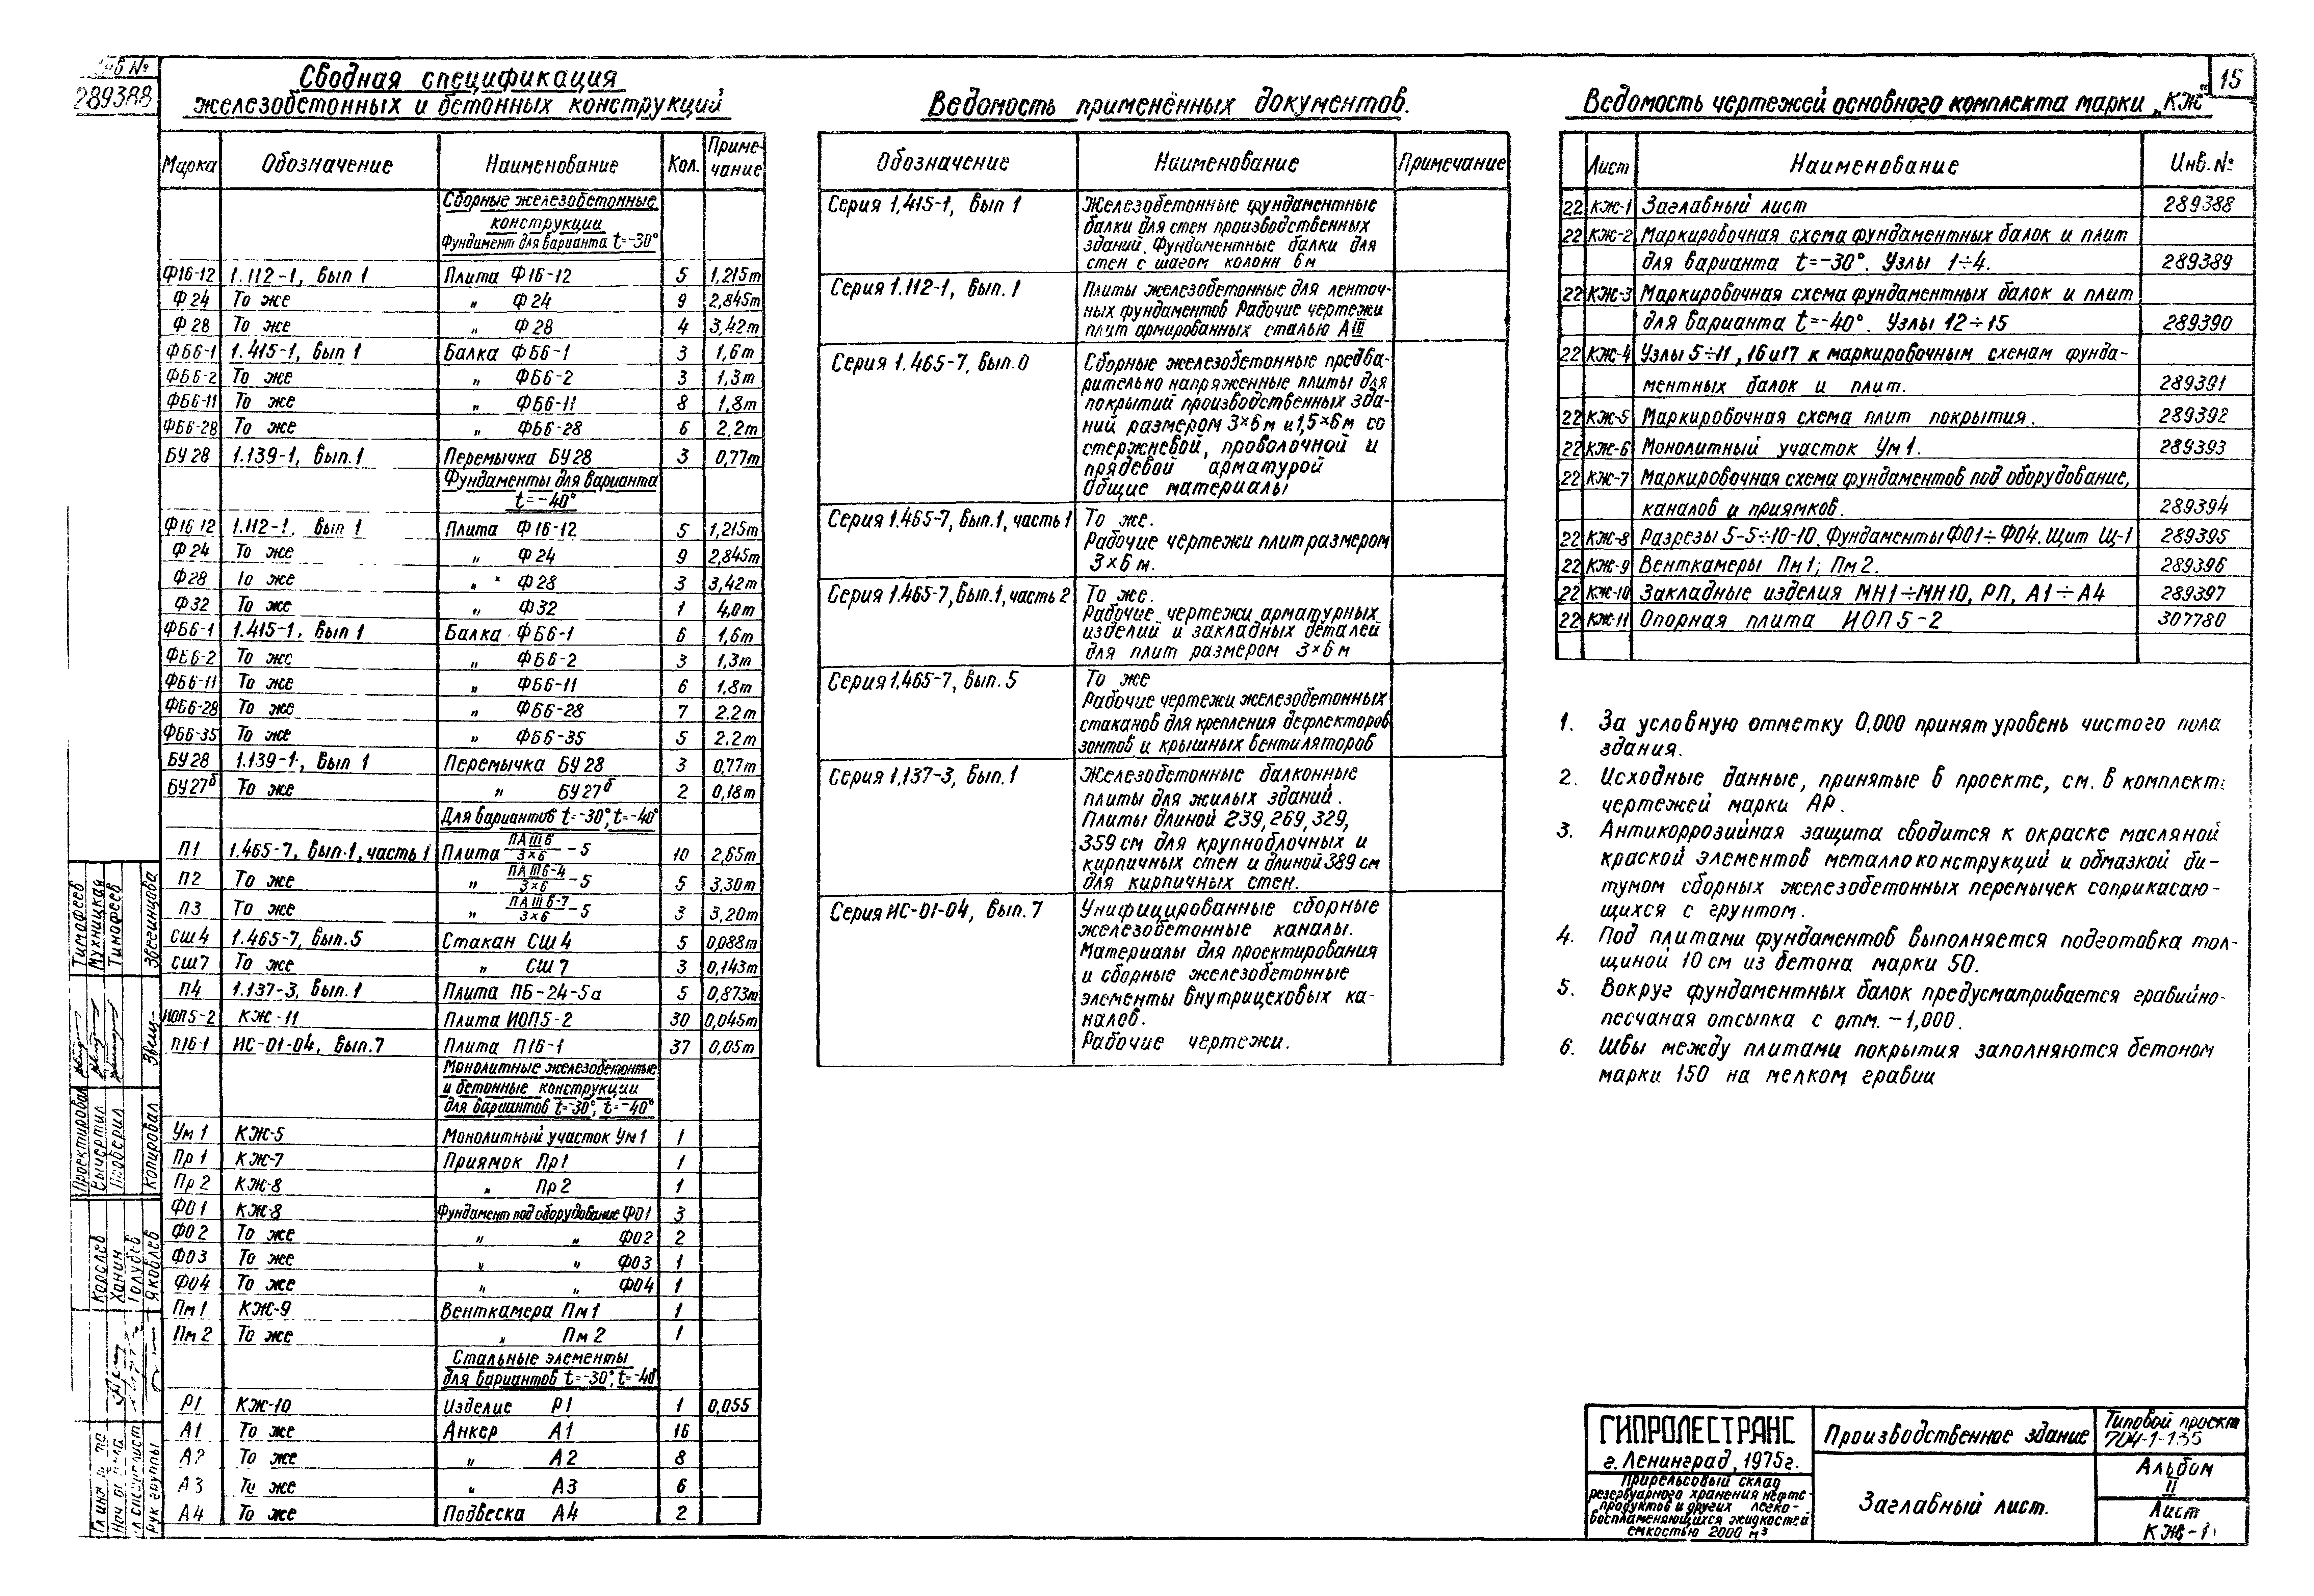 Инв №
289388
15
Сводная спецификация
железобетонных и бетонных конструкций
Марка Обозначение Наименование Кол. Приме-
чание
Сборные железобетонные
конструкции
Фундамент для варианта t=-30°
Ф16-12 1.112-1, вып 1 Плита Ф16-12 5 1,215т
Ф24 То же „ Ф24 9 2,845т
Ф28 То же „ Ф28 4 3,42т
ФБ6-1 1.415-1, вып 1 Балка ФБ6-1 3 1,6т
ФБ6-2 То же „ ФБ6-2 3 1,3т
ФБ6-11 То же „ ФБ6-11 8 1,8т
ФБ6-28 То же „ ФБ6-28 6 2,2т
БУ28 1.139-1, вып.1 Перемычка БУ28 3 0,77т
Фундаменты для варианта
t=-40°
Ф16 12 1.112-1, вып 1 Плита Ф16-12 5 1,215т
Ф24 То же „ Ф24 9 2,845т
Ф28 То же „ Ф28 3 3,42т
Ф32 То же „ Ф32 1 4,0т
ФБ6-1 1.415-1, вып 1 Балка ФБ6-1 6 1,6т
ФБ6-2 То же „ ФБ6-2 3 1,3т
ФБ6-11 То же „ ФБ6-11 6 1,8т
ФБ6-28 То же „ ФБ6-28 7 2.2т
ФБ6-35 То же „ ФБ6-35 5 2.2т
БУ28 1.139-1, вып 1 Перемычка БУ28 3 0,77т
БУ27б То же „ БУ27б 2 0,18т
Для вариантов t=-30°, t=-40°
П1 1.465-7, вып.1, часть 1 Плита ПАIIIБ/3×6 -5 10 2,65т
П2 То же „ ПАIIIБ-4/3×6 -5 5 3,30т
П3 То же „ ПАIIIБ-7/3×6 -5 3 3,20т
СШ4 1.465-7, вып.5 Стакан СШ4 5 0,088т
СШ7 То же „ СШ7 3 0,143т
П4 1.137-3, вып.1 Плита ПБ-24-5а 5 0,873т
ИОП5-2 КЖ-11 Плита ИОП5-2 30 0,045т
П16-1 ИС-01-04, вып.7 Плита П16-1 37 0,05т
Монолитные железобетонные
и бетонные конструкции
для вариантов t=-30°, t=-40°
Ум1 КЖ-5 Монолитный участок Ум1 1
Пр1 КЖ-7 Приямок Пр1 1
Пр2 КЖ-8 „ Пр2 1
Ф01 КЖ-8 Фундамент под оборудование Ф01 3
Ф02 То же „ „ Ф02 2
Ф03 То же „ „ Ф03 1
Ф04 То же „ „ Ф04 1
Пм1 КЖ-9 Венткамера Пм1 1
Пм2 То же „ Пм2 1
Стальные элементы
для вариантов t=-30°, t=-40°
Р1 КЖ-10 Изделие Р1 1 0,055
А1 То же Анкер А1 16
А2 То же „ А2 8
А3 То же „ А3 6
А4 То же Подвеска А4 2
Ведомость применённых документов.
Обозначение Наименование Примечание
Серия 1.415-1, вып 1 Железобетонные фундаментные
балки для стен производственных
зданий. Фундаментные балки для
стен с шагом колонн 6м
Серия 1.112-1, вып.1 Плиты железобетонные для ленточ-
ных фундаментов Рабочие чертежи
плит армированных сталью АIII
Серия 1.465-7, вып.0 Сборные железобетонные предва-
рительно напряженные плиты для
покрытий производственных зда-
ний размером 3×6м и 1,5×6м со
стержневой, проволочной и
прядевой арматурой
Общие материалы
Серия 1.465-7, вып.1, часть 1 То же.
Рабочие чертежи плит размером
3×6м.
Серия 1.465-7, вып.1, часть 2 То же.
Рабочие чертежи арматурных
изделий и закладных деталей
для плит размером 3×6м
Серия 1.465-7, вып.5 То же
Рабочие чертежи железобетонных
стаканов для крепления дефлекторов
зонтов и крышных вентиляторов
Серия 1.137-3, вып.1 Железобетонные балконные
плиты для жилых зданий.
Плиты длиной 239, 269, 329,
359 см для крупноблочных и
кирпичных стен и длиной 389 см
для кирпичных стен.
Серия ИС-01-04, вып.7 Унифицированные сборные
железобетонные каналы.
Материалы для проектирования
и сборные железобетонные
элементы внутрицеховых ка-
налов.
Рабочие чертежи.
Ведомость чертежей основного комплекта марки „КЖ"
Лист Наименование Инв.№
22 КЖ-1 Заглавный лист 289388
22 КЖ-2 Маркировочная схема фундаментных балок и плит
для варианта t=-30°. Узлы 1÷4. 289389
22 КЖ-3 Маркировочная схема фундаментных балок и плит
для варианта t=-40°. Узлы 12÷15 289390
22 КЖ-4 Узлы 5÷11, 16 и 17 к маркировочным схемам фунда-
ментных балок и плит. 289391
22 КЖ-5 Маркировочная схема плит покрытия. 289392
22 КЖ-6 Монолитный участок Ум1. 289393
22 КЖ-7 Маркировочная схема фундаментов под оборудование,
каналов и приямков. 289394
22 КЖ-8 Разрезы 5-5÷10-10. Фундаменты Ф01÷Ф04. Щит Щ-1 289395
22 КЖ-9 Венткамеры Пм1; Пм2. 289396
22 КЖ-10 Закладные изделия МН1÷МН10, РП, А1÷А4 289397
22 КЖ-11 Опорная плита ИОП5-2 307780
1. За условную отметку 0,000 принят уровень чистого пола
здания.
2. Исходные данные, принятые в проекте, см. в комплект
чертежей марки АР.
3. Антикоррозийная защита сводится к окраске масляной
краской элементов металлоконструкций и обмазкой би-
тумом сборных железобетонных перемычек соприкасаю-
щихся с грунтом.
4. Под плитами фундаментов выполняется подготовка тол-
щиной 10 см из бетона марки 50.
5. Вокруг фундаментных балок предусматривается гравийно-
песчаная отсыпка с отм. -1,000.
6. Швы между плитами покрытия заполняются бетоном
марки 150 на мелком гравии
ГИПРОЛЕСТРАНС
г. Ленинград, 1975г.
Прирельсовый склад
резервуарного хранения нефте-
продуктов и других легко-
воспламеняющихся жидкостей
емкостью 2000 м³
Производственное здание
Заглавный лист.
Типовой проект
704-1-135
Альбом
II
Лист
КЖ-1
Проектировал Тимофеев
Вычертил Мухницкая
Проверил Тимофеев
Копировал Звегинцова
Королев
Ханин
Голубев
Рук группы Яковлев